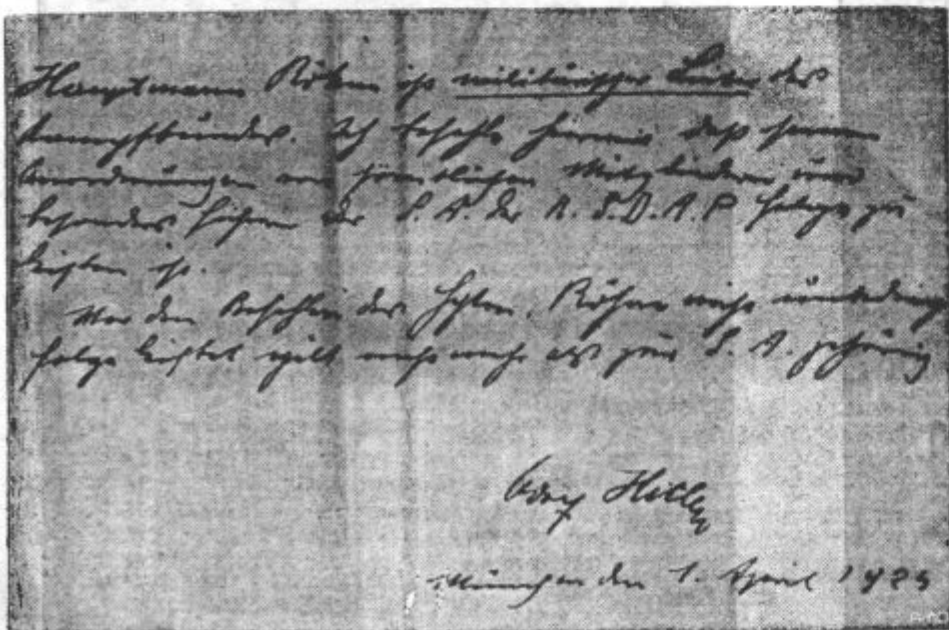 Hauptmann Röhm ist militärischer Leiter des
Kampfbundes. Ich befehle hiermit daß seinen
Anordnungen von sämtlichen Mitgliedern und
besonders Führern der S. A. der N. S. D. A. P Folge zu
leisten ist.
Wer den Befehlen des Hptm. Röhm nicht unbedingt
folge leistet gilt nicht mehr als zur S. A. gehörig
Adolf Hitler
München den 1. April 192